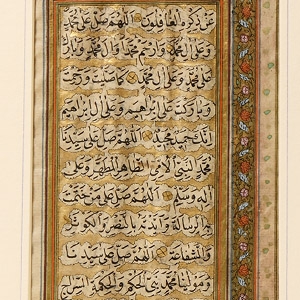 عن ذكره الغافلون اللهم صل على محمد
وعلى آل محمد وارحم محمدا وآل محمد وبارك
على محمد وعلى آل محمد كما صليت ورحمت
وباركت على إبراهيم وعلى آل إبراهيم
إنك حميد مجيد اللهم صل على سيدنا
محمد النبي الأمي الطاهر المطهر وعلى
آله وسلم اللهم صل على من ختمت
به الرسالة وأيدته بالنصر والكوثر
والشفاعة اللهم صل على سيدنا
ومولانا محمد نبي الحكم والحكمة السراج